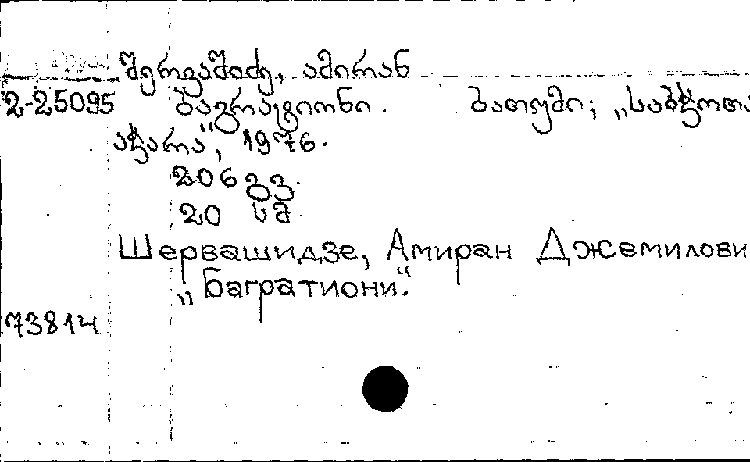 შერვაშიძე, ამირან
2-25095 ბაგრატიონი. ბათუმი; „საბჭოთა
აჭარა", 1976.
206 გვ.
20 სმ
Шервашидзе, Амиран Джемилови
„Багратиони".
73814